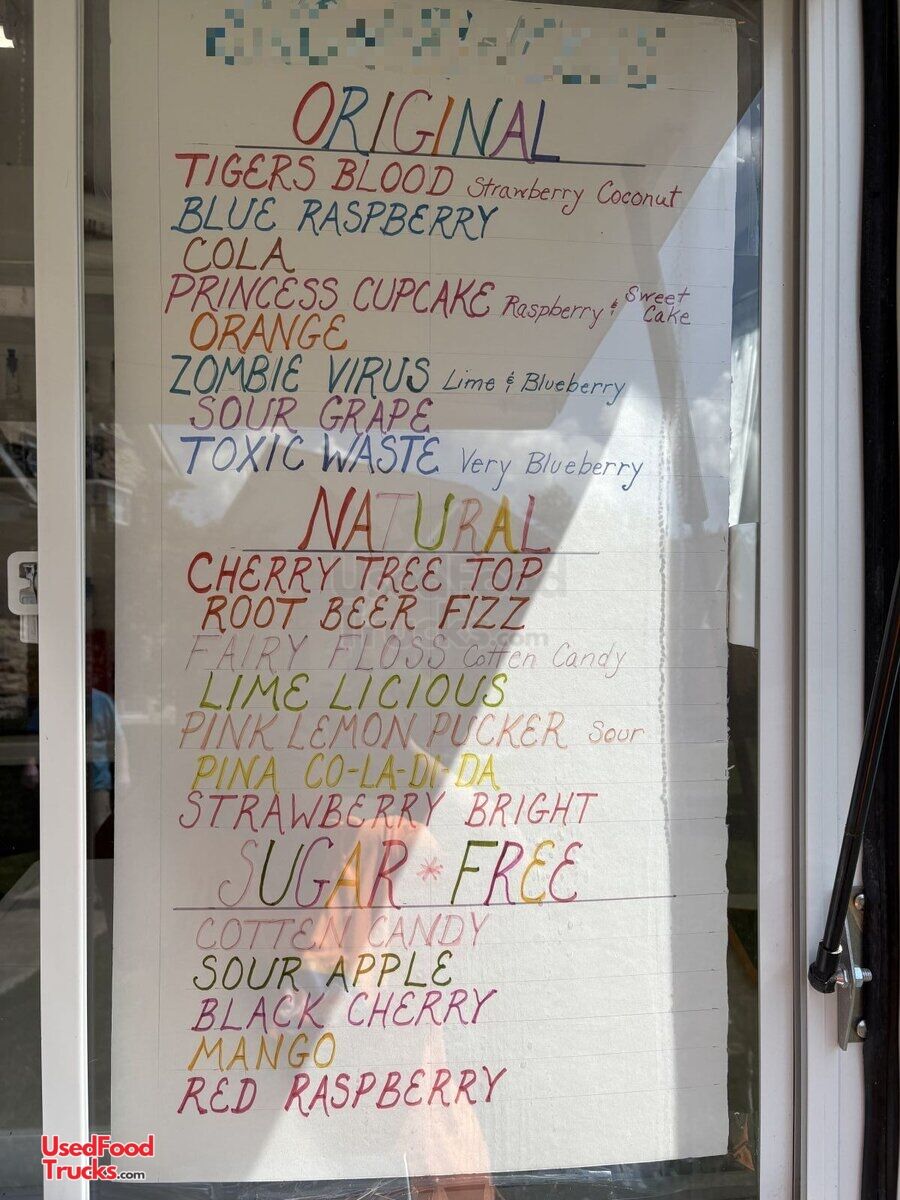 ORIGINAL
TIGERS BLOOD Strawberry Coconut
BLUE RASPBERRY
COLA
PRINCESS CUPCAKE Raspberry & Sweet Cake
ORANGE
ZOMBIE VIRUS Lime & Blueberry
SOUR GRAPE
TOXIC WASTE Very Blueberry
NATURAL
CHERRY TREE TOP
ROOT BEER FIZZ
FAIRY FLOSS Cotten Candy
LIME LICIOUS
PINK LEMON PUCKER Sour
PINA CO-LA-DI-DA
STRAWBERRY BRIGHT
SUGAR * FREE
COTTEN CANDY
SOUR APPLE
BLACK CHERRY
MANGO
RED RASPBERRY
UsedFood
Trucks.com